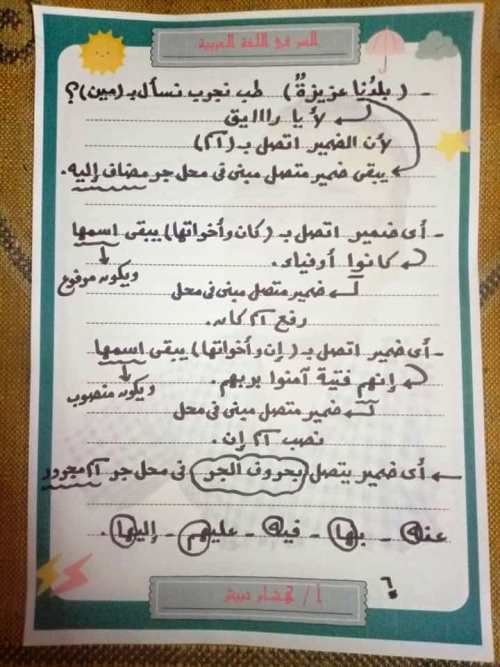 السر في اللغة العربية
- (بلدُنا عزيزةٌ) طب نجرب نسأل بـ (مين)؟
لأ يا رااايق
لأن الضمير اتصل بـ (اسم)
يبقى ضمير متصل مبنى فى محل جر مضاف إليه.
- أى ضمير اتصل بـ (كان وأخواتها) يبقى اسمها
كانوا أوفياء.
ويكون مرفوع
ضمير متصل مبنى فى محل
رفع اسم كان.
- أى ضمير اتصل بـ (إن وأخواتها) يبقى اسمها
إنهم فتية آمنوا بربهم.
ويكون منصوب
ضمير متصل مبنى فى محل
نصب اسم إن.
أى ضمير يتصل بحروف الجر فى محل جر اسم مجرور
عنه - بها - فيه - عليهم - إليها.
٦
أ /